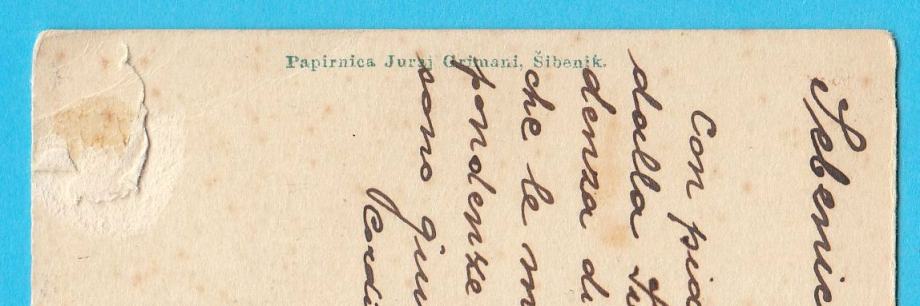 Papirnica Juraj Grimani, Šibenik.
Sebenic
Con pia
dalla Su
denza di
che le m
pondenze
sono giun
Cordi